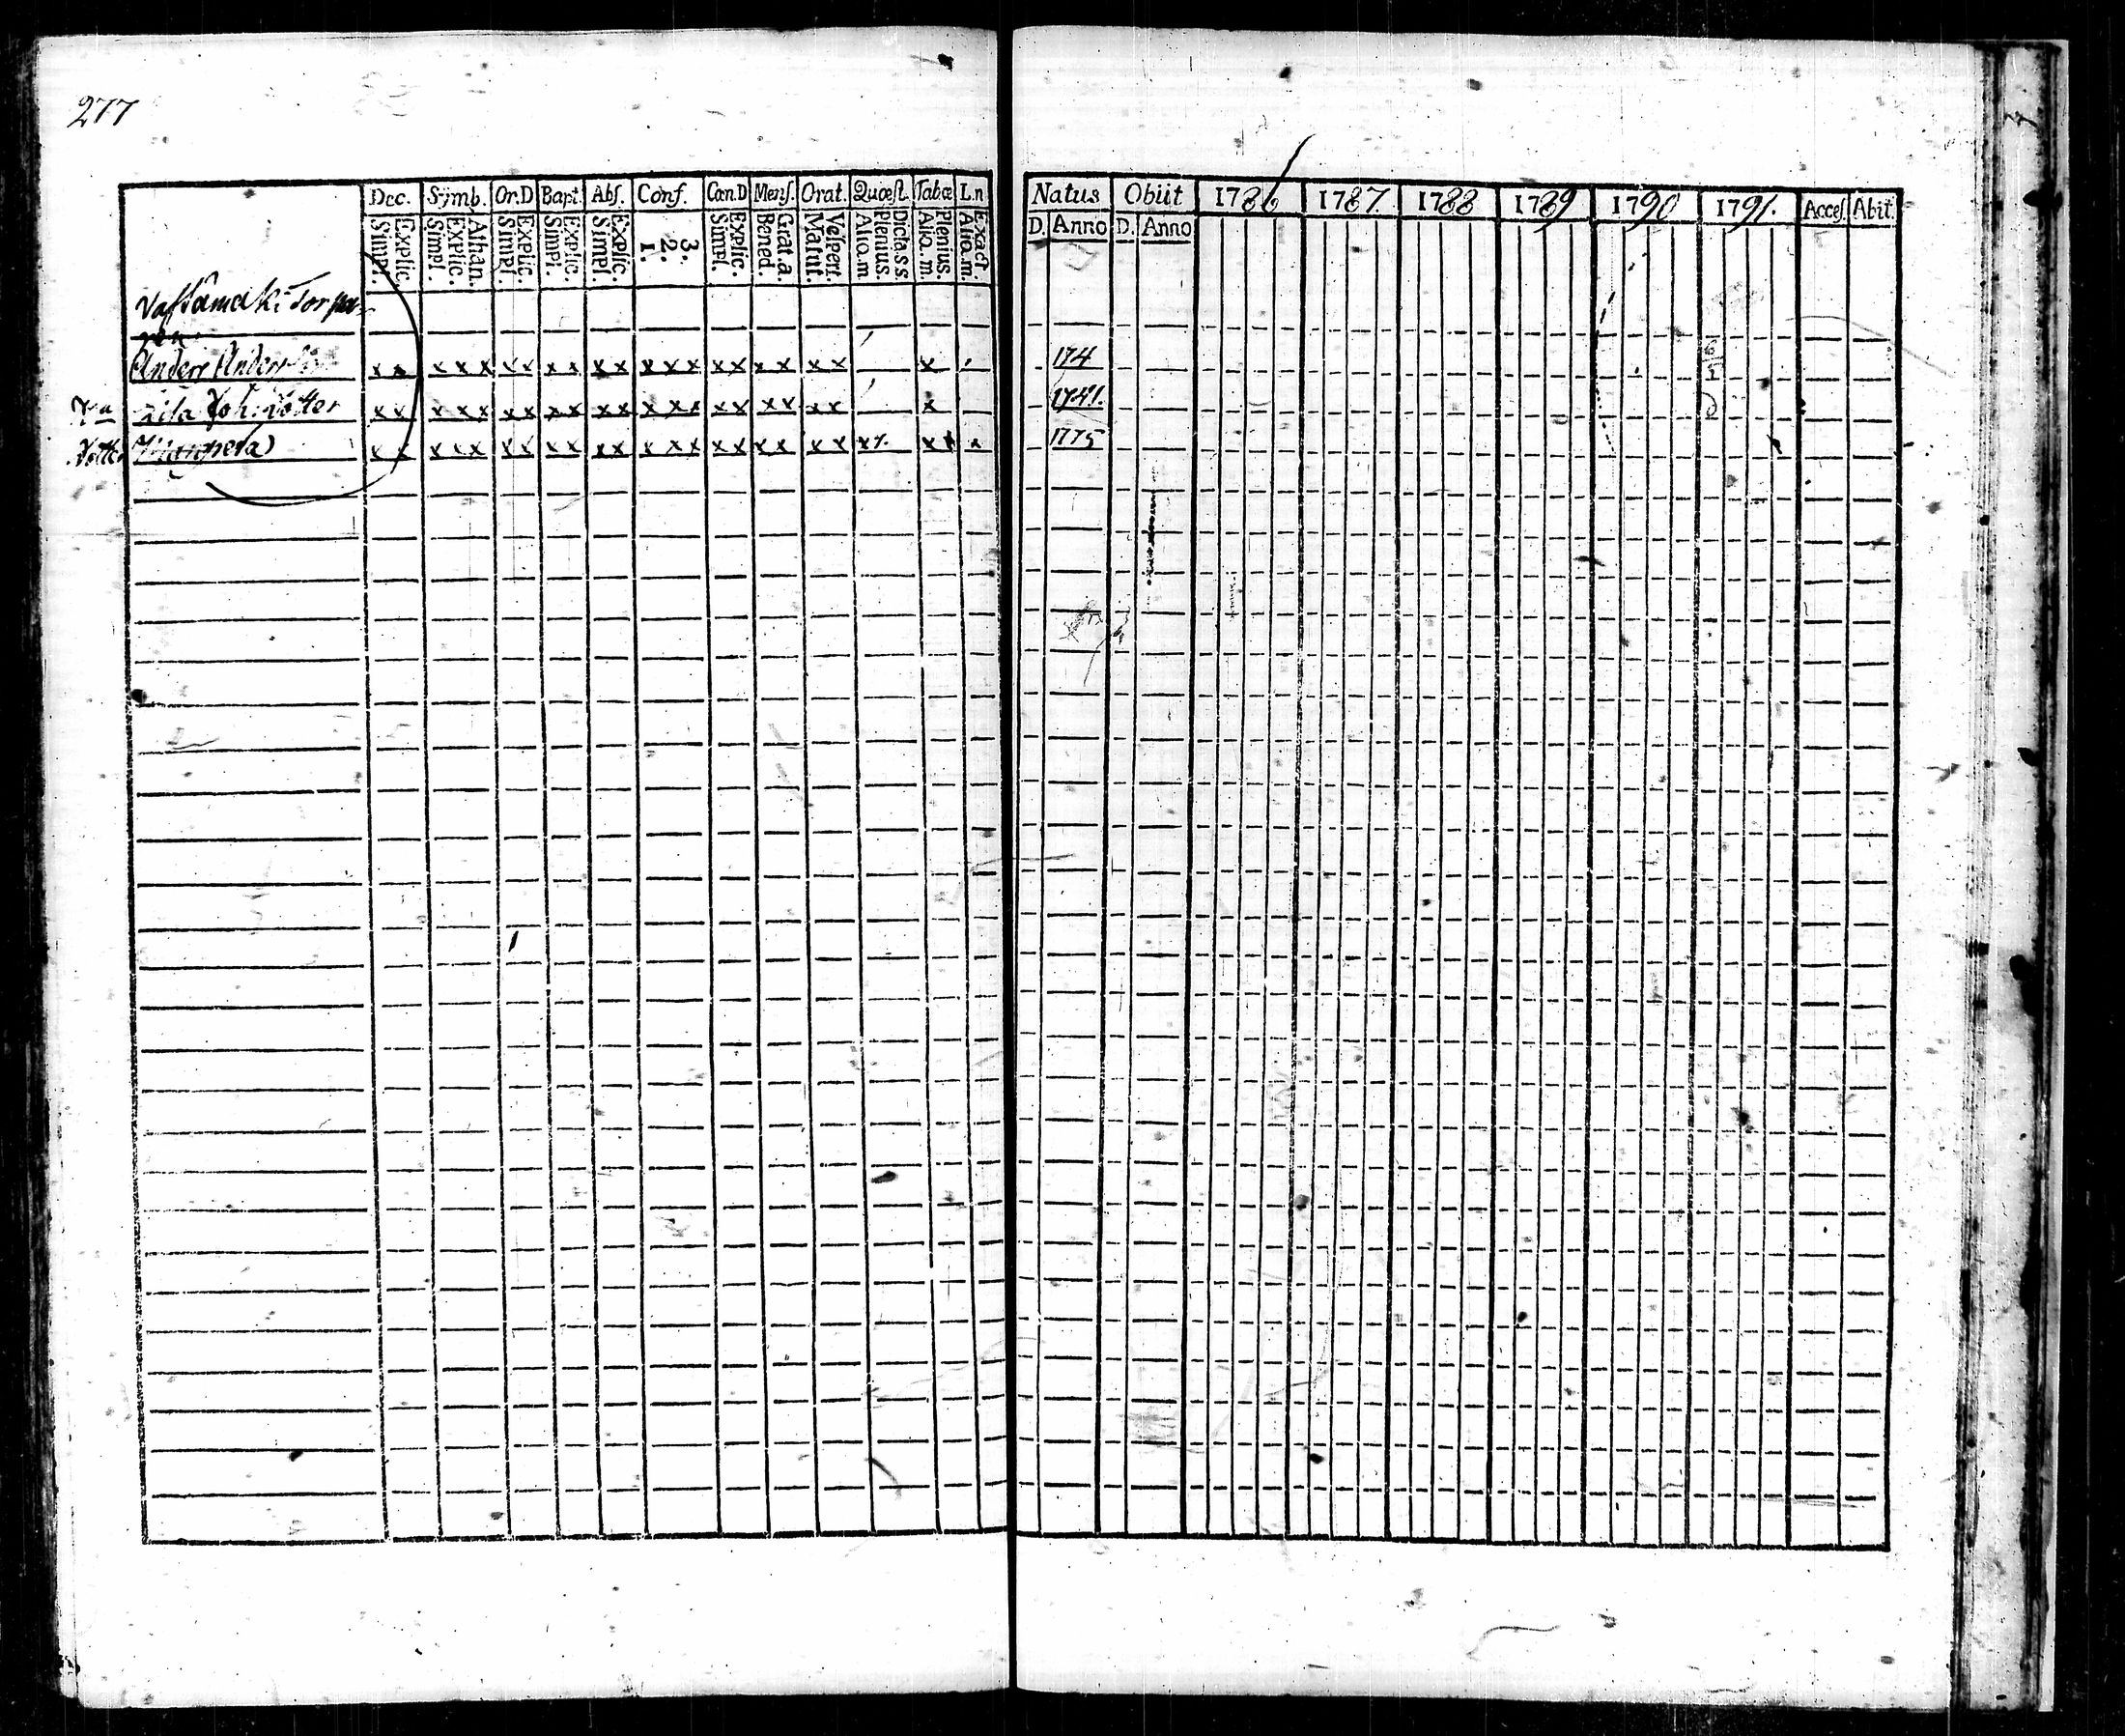 277
Dec. Symb. Or.D Bapt. Abs. Conf. Cœn.D Mens. Orat. Quæst. Tabæ L.n
Explic. Simpl. Athan. Explic. Simpl. Explic. Simpl. Explic. Simpl. Explic. Simpl. 3. 2. 1. Explic. Simpl. Grat.a. Bened. Vespert. Matut. Dicta.s.s. Plenius. Alio.m Plenius. Alio.m. Exact. Alio.m.
Natus Obiit 1786 1787. 1788 1789 1790 1791. Acces. Abit.
D. Anno D. Anno
Anders Anders x x x x x x x x x x x x x x x x x x x x x 174
Joh: dotter x x x x x x x x x x x x x x x x x x x x x 1741.
Margreta x x x x x x x x x x x x x x x x x x x x x x x x 1775